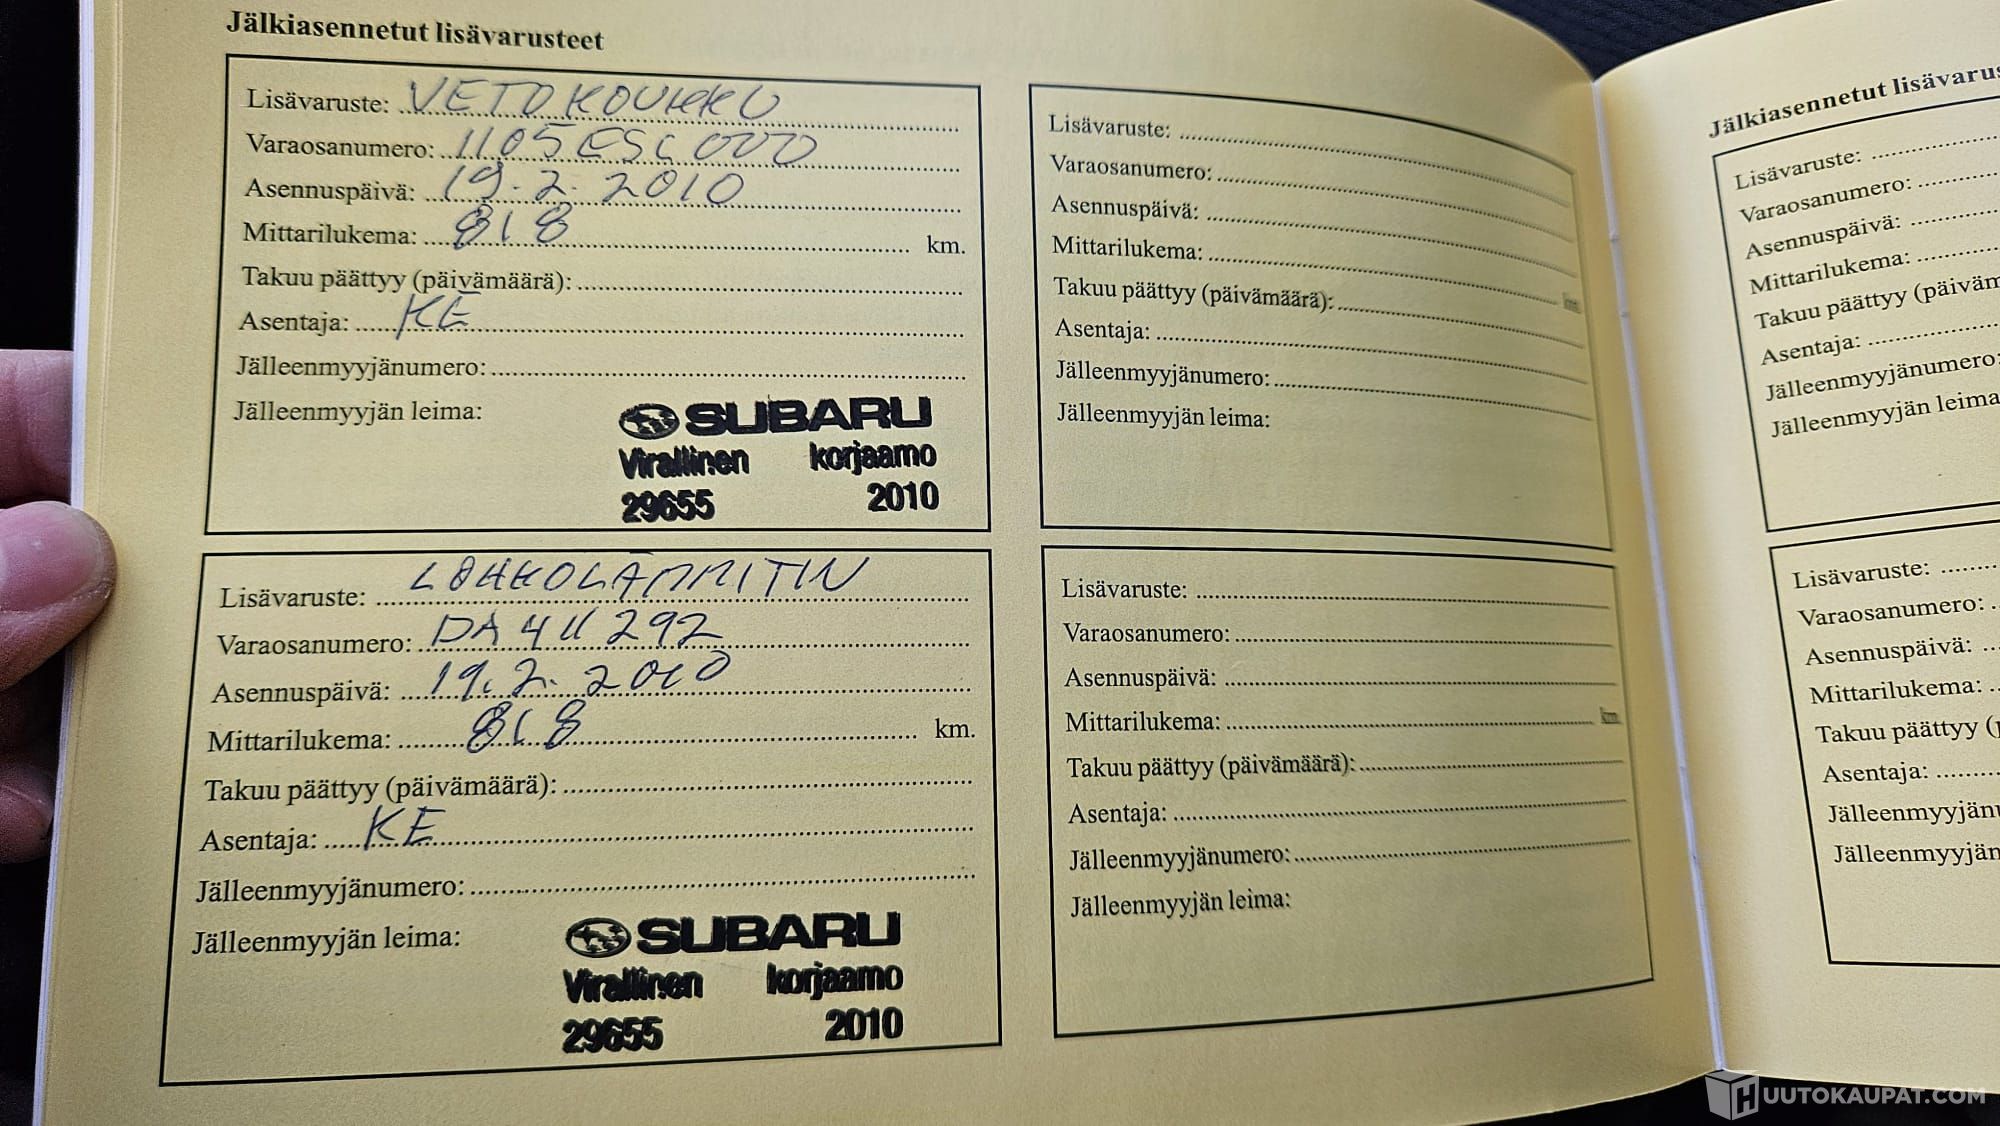 Jälkiasennetut lisävarusteet
Lisävaruste: VETOKOUKKU
Varaosanumero: 1105ESC000
Asennuspäivä: 19.2.2010
Mittarilukema: 818 km.
Takuu päättyy (päivämäärä):
Asentaja: KE
Jälleenmyyjänumero:
Jälleenmyyjän leima:
SUBARU
Virallinen korjaamo
29655 2010
Lisävaruste: LOHKOLÄMMITIN
Varaosanumero: DA411292
Asennuspäivä: 19.2.2010
Mittarilukema: 818 km.
Takuu päättyy (päivämäärä):
Asentaja: KE
Jälleenmyyjänumero:
Jälleenmyyjän leima:
SUBARU
Virallinen korjaamo
29655 2010
Lisävaruste:
Varaosanumero:
Asennuspäivä:
Mittarilukema: km.
Takuu päättyy (päivämäärä):
Asentaja:
Jälleenmyyjänumero:
Jälleenmyyjän leima:
Lisävaruste:
Varaosanumero:
Asennuspäivä:
Mittarilukema: km.
Takuu päättyy (päivämäärä):
Asentaja:
Jälleenmyyjänumero:
Jälleenmyyjän leima:
Jälkiasennetut lisävarus
Lisävaruste:
Varaosanumero:
Asennuspäivä:
Mittarilukema:
Takuu päättyy (päiväm
Asentaja:
Jälleenmyyjänumero:
Jälleenmyyjän leima
Lisävaruste:
Varaosanumero:
Asennuspäivä:
Mittarilukema:
Takuu päättyy (
Asentaja:
Jälleenmyyjän
Jälleenmyyjän
HUUTOKAUPAT.COM